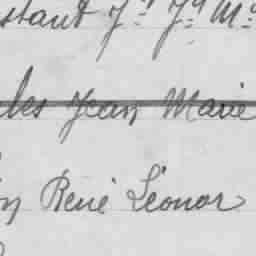 stant J. J. M.
les Jean Marie
n René Léonor